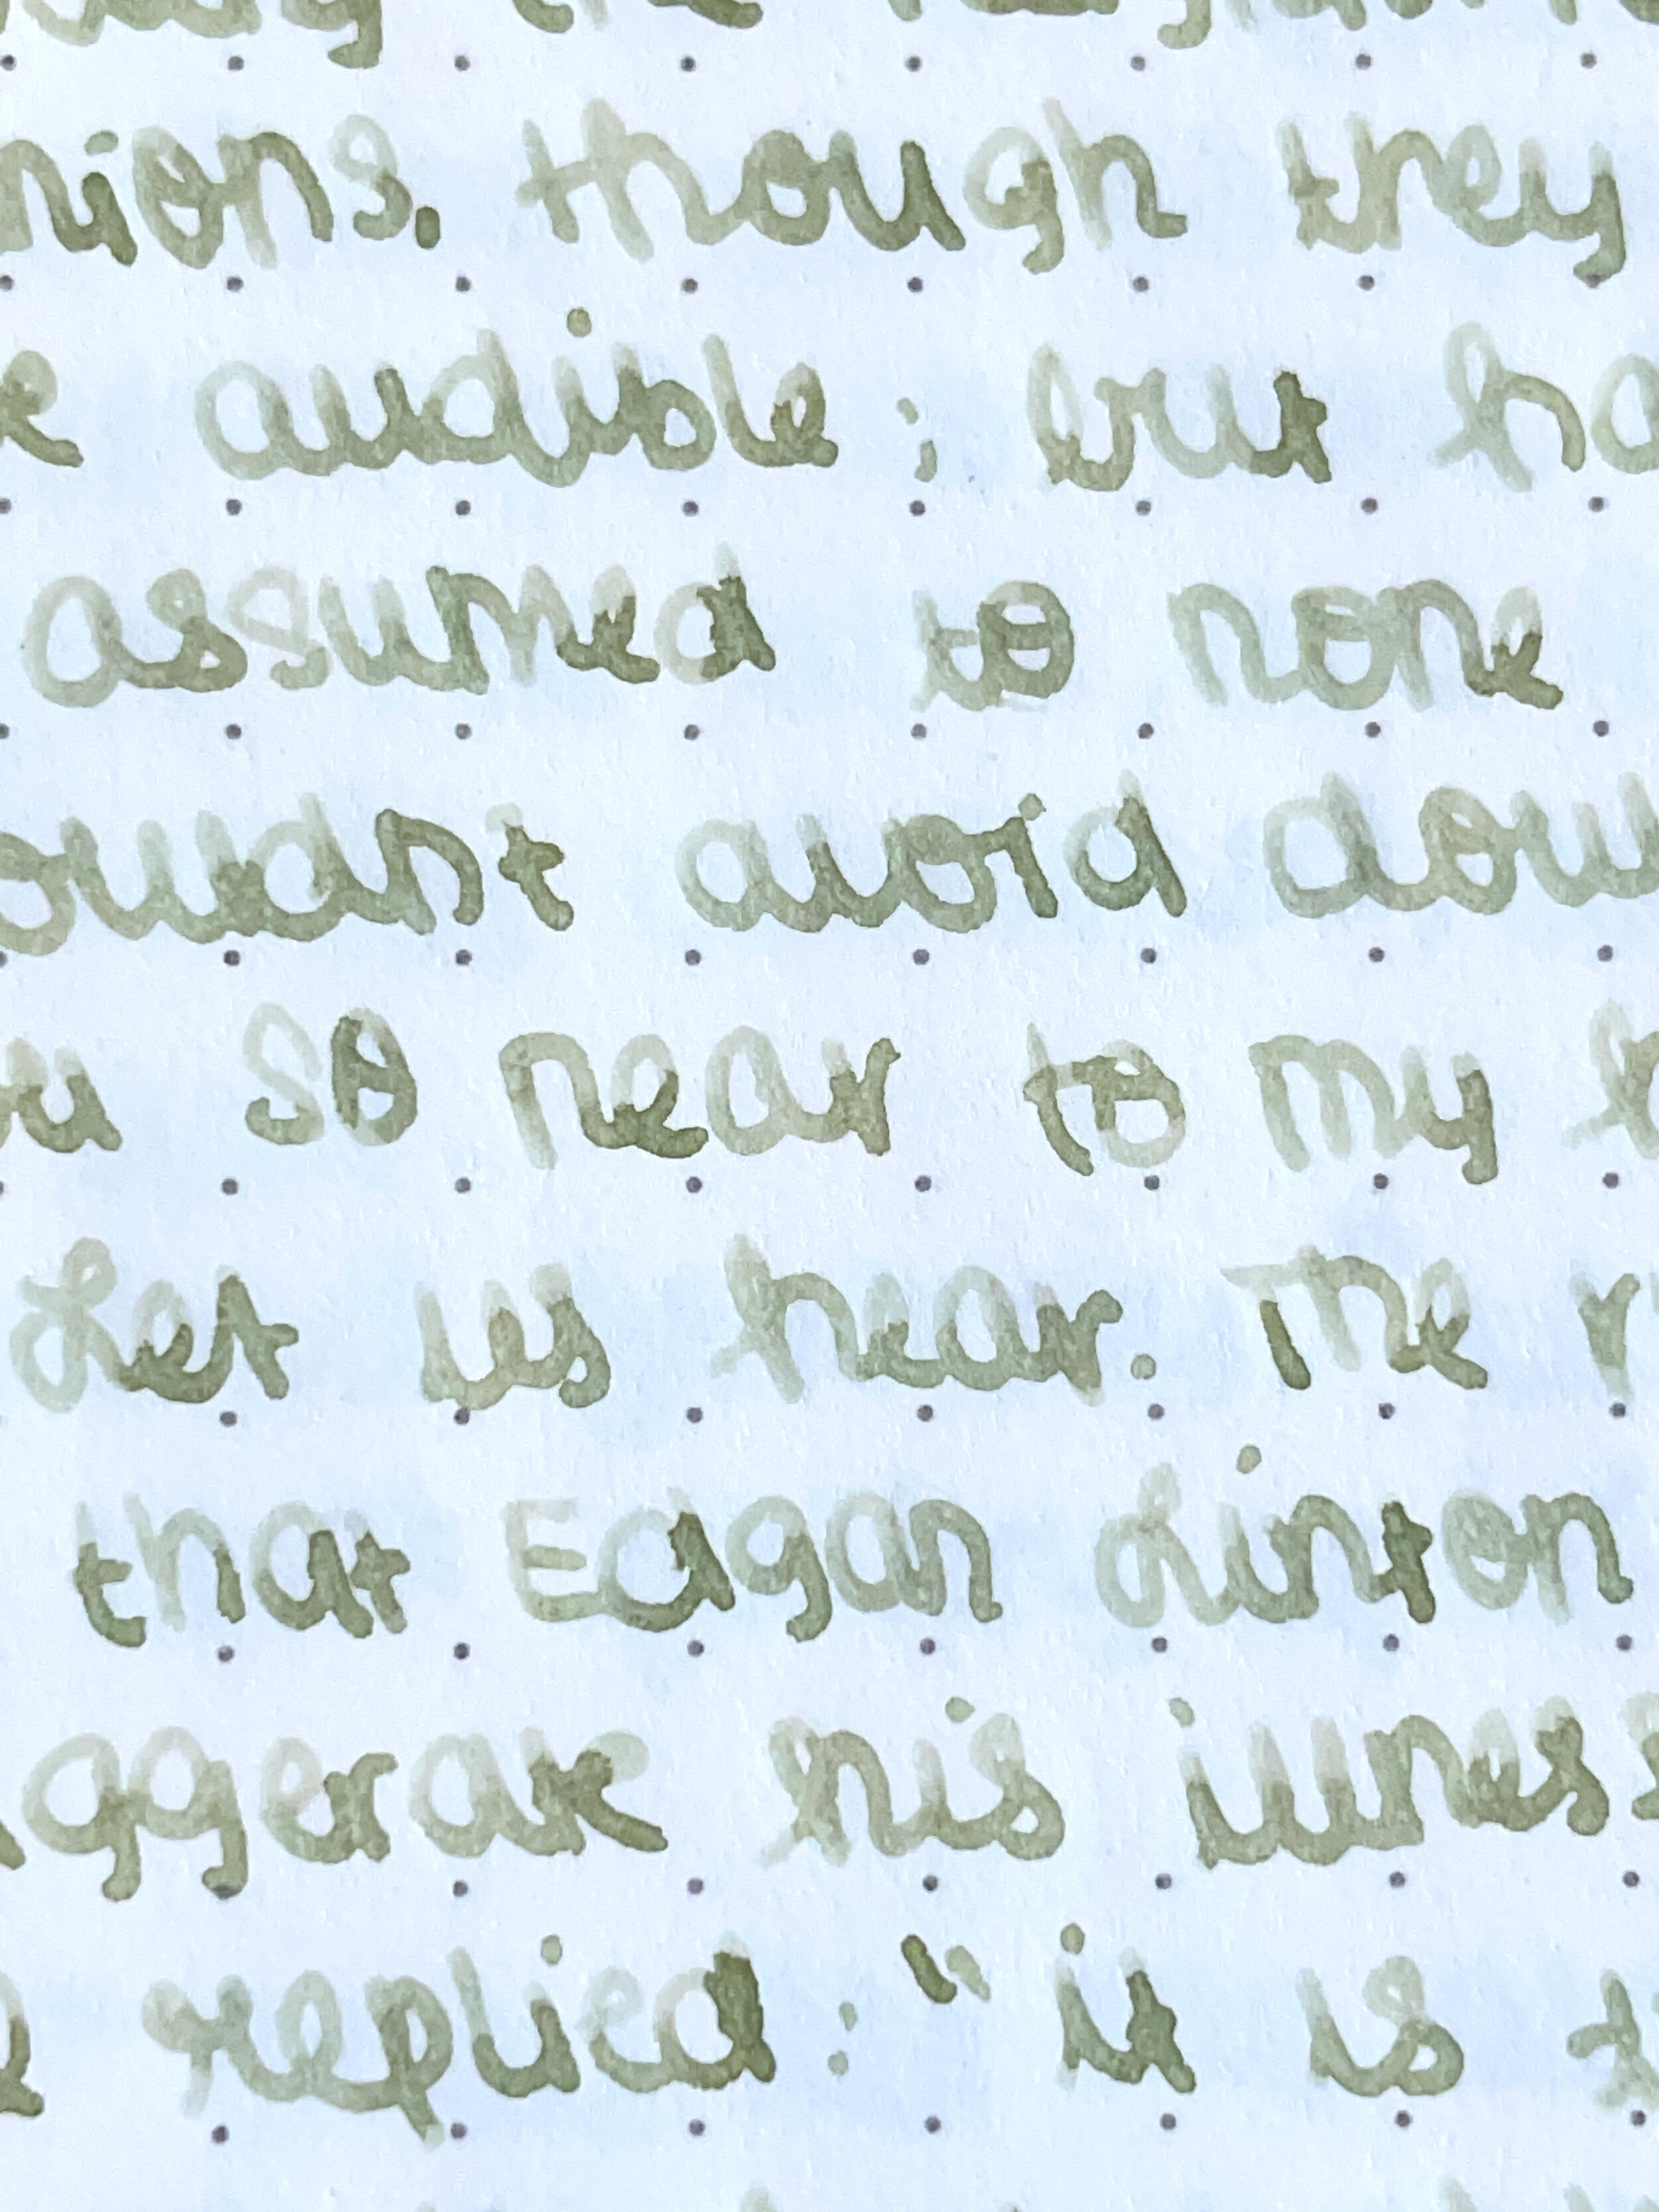 the
nions. though they
audible; but ha
assumed to none
ouldn't avoid dou
ou so near to my h
Let us hear. The r
that Edgar Linton
aggerate his illness
replied: "it is t